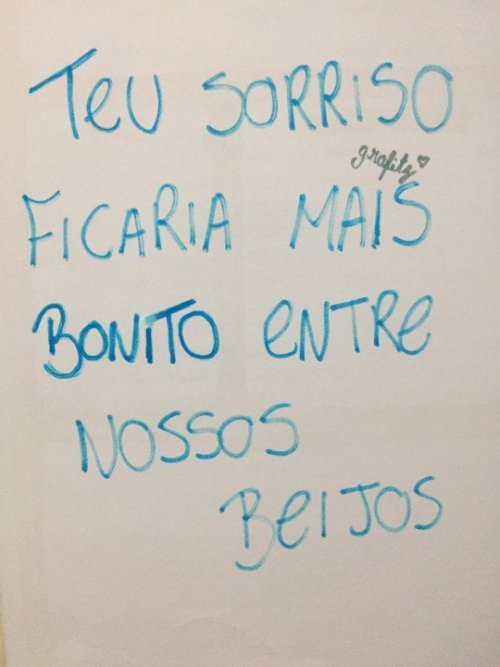 TeU SORRISO
grafitz ♡
FICARIA MAIS
BONITO eNTRe
NOSSOS
BeIJOS